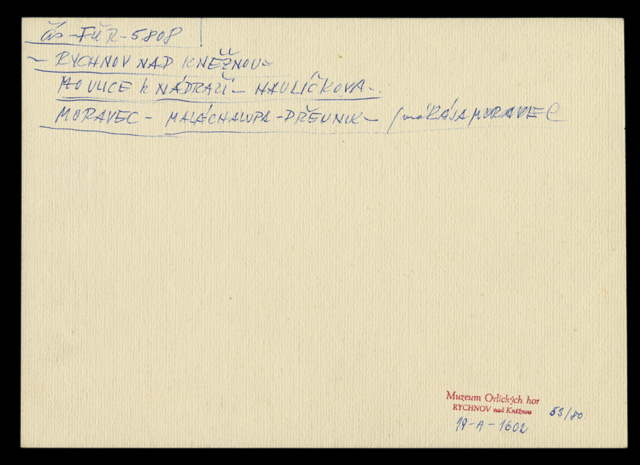 čís - FÚR - 5808
- RYCHNOV NAD KNĚŽNOU -
ULICE k NÁDRAŽÍ - HAVLÍČKOVA -
MORAVEC - MALÁ CHALUPA - DŘEVNIK - MORAVEC
Muzeum Orlických hor
RYCHNOV nad Kněžnou
53/80
19-A-1602